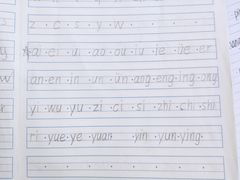 z · c · s · y · w ·
ai · ei · ui · ao · ou · iu · ie · üe · er
an · en · in · un · ün · ang · eng · ing · ong
yi · wu · yu · zi · ci · si · zhi · chi · shi
ri · yue · ye · yuan yin · yun · ying ·